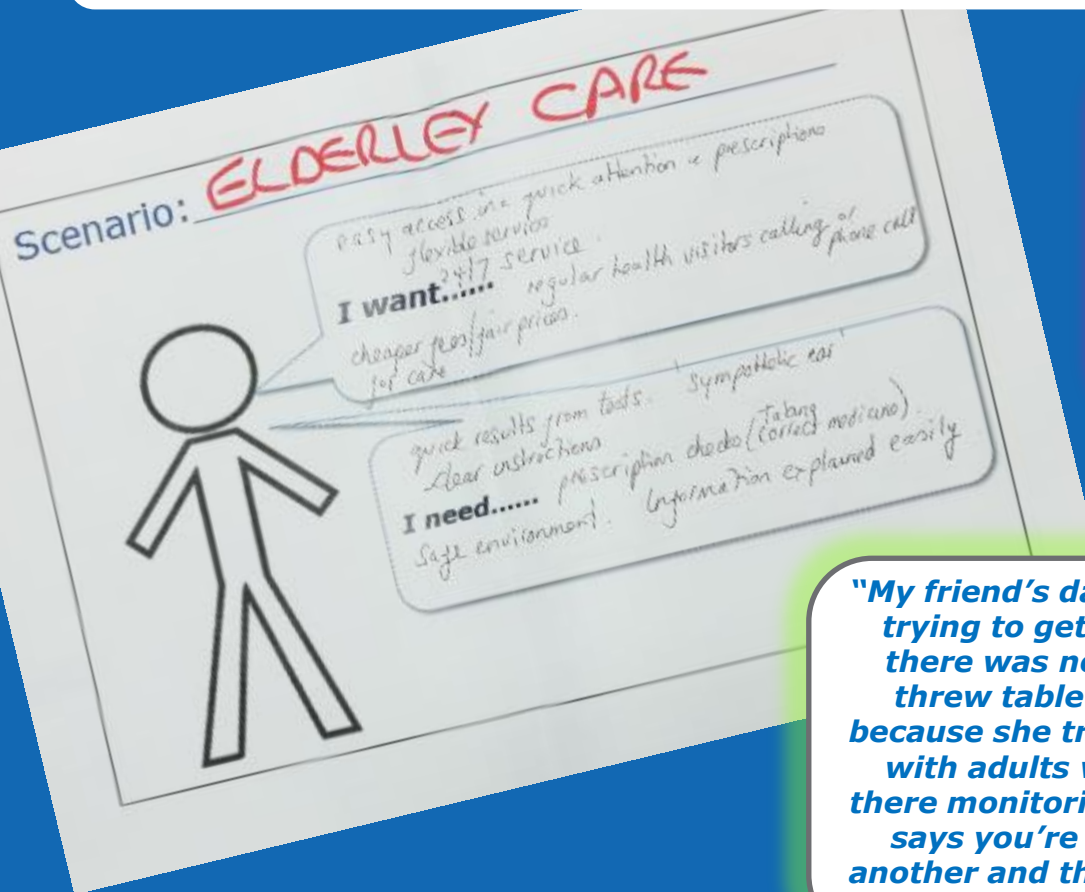 Scenario: ELDERLEY CARE
easy access ie quick attention ie prescriptions
flexible service
24/7 service.
I want...... regular health visitors calling or phone call
cheaper fees/fair prices.
for care
quick results from tests. sympathetic ear
clear instructions
I need...... prescription checks (Taking correct medicine).
Safe environment. Information explained easily
"My friend's da
trying to get
there was no
threw table
because she tr
with adults
there monitori
says you're
another and th